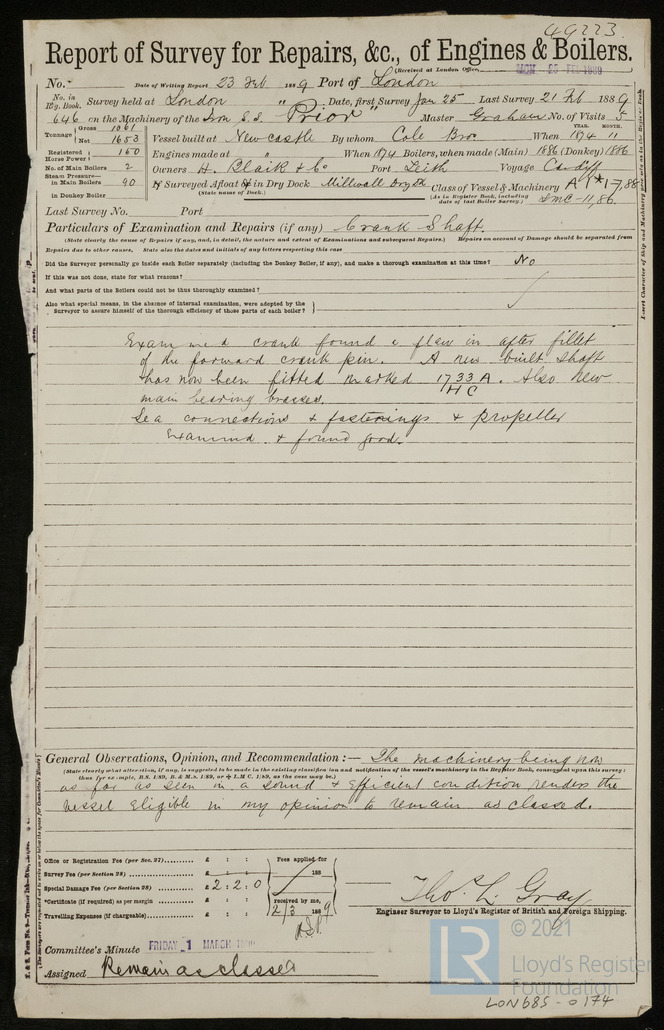 49223
Report of Survey for Repairs, &c., of Engines & Boilers.
(Received at London Office, MON 25 FEB 1889
No. Date of Writing Report 23 Feb 1889 Port of London
No. in Reg. Book. Survey held at London Date, first Survey Jan 25 Last Survey 21 Feb 1889
646 on the Machinery of the Iron S.S. "Prior" Master Graham No. of Visits 5
Tonnage Gross 1061 Net 1653 Vessel built at Newcastle By whom Cole Bro When YEAR. 1874 MONTH. 11
Registered Horse Power 150 Engines made at " When 1874 Boilers, when made (Main) 1886 (Donkey) 1886
No. of Main Boilers 2 Owners H. Blaik & Co Port Leith Voyage Cardiff
Steam Pressure— in Main Boilers 90 If Surveyed Afloat or in Dry Dock Millwall Dry Dk Class of Vessel & Machinery A 1 * 1-7,88
in Donkey Boiler (State name of Dock.) (As in Register Book, including date of last Boiler Survey.) LMC-11,86.
Last Survey No. Port
Particulars of Examination and Repairs (if any) Crank Shaft.
(State clearly the cause of Repairs if any, and, in detail, the nature and extent of Examinations and subsequent Repairs.) Repairs on account of Damage should be separated from
Repairs due to other causes. State also the dates and initials of any letters respecting this case
Did the Surveyor personally go inside each Boiler separately (including the Donkey Boiler, if any), and make a thorough examination at this time? No
If this was not done, state for what reasons?
And what parts of the Boilers could not be thus thoroughly examined?
Also what special means, in the absence of internal examination, were adopted by the
Surveyor to assure himself of the thorough efficiency of those parts of each boiler?
Examined crank found a flaw in after fillet
of the forward crank pin. A new built shaft
has now been fitted marked 1733 A. Also New
HC
main bearing brasses.
Sea connections & fastenings & propeller
Examined & found good.
General Observations, Opinion, and Recommendation :— The machinery being now
(State clearly what alteration, if any, is suggested to be made in the existing classification and notification of the vessel's machinery in the Register Book, consequent upon this survey:
thus for example, B.S. 1/89, B. & M.S. 1/89, or + L.M.C. 1/89, as the case may be.)
as far as seen in a sound & Efficient condition renders the
vessel Eligible in my opinion to remain as classed.
Office or Registration Fee (per Sec. 27) £ : : Fees applied for
Survey Fee (per Section 28) £ : : 188
Special Damage Fee (per Section 28) £ 2 : 2 : 0
*Certificate (if required) as per margin £ : : received by me,
Travelling Expenses (if chargeable) £ : : 2/3 1889
Tho. L. Gray
Engineer Surveyor to Lloyd's Register of British and Foreign Shipping.
Committee's Minute FRIDAY 1 MARCH
Assigned Remain as classed
© 2021
LR
Lloyd's Register
Foundation
LON685-0174